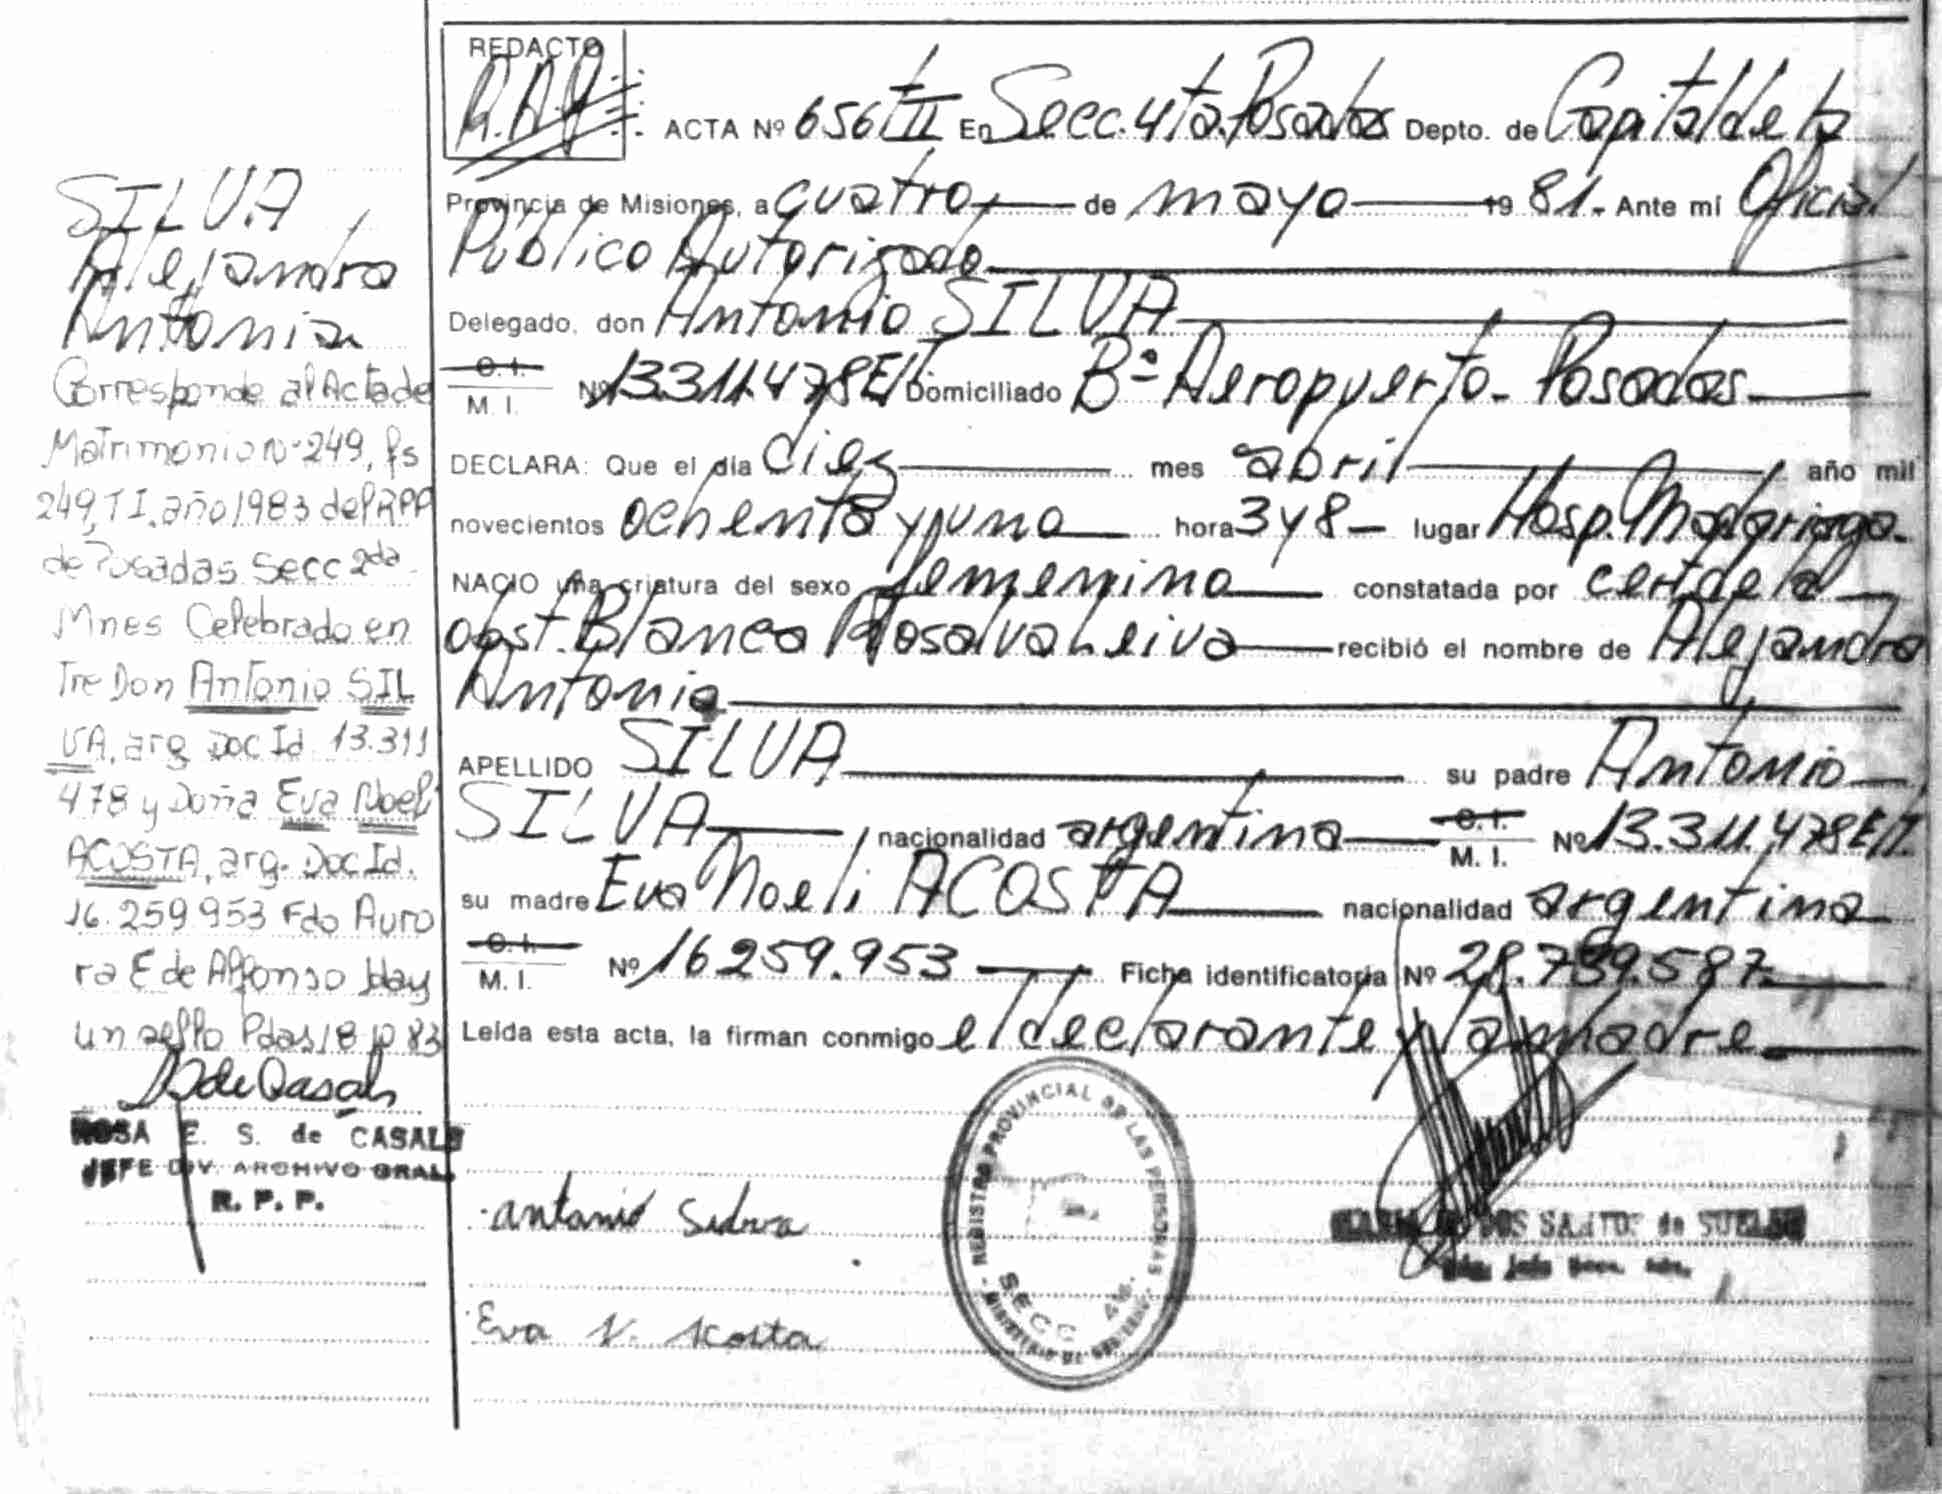 SILVA
Alejandra
Antonia
Corresponde al Acta de
Matrimonio Nº 249, fs
249, T I, año 1983 del RPP
de Posadas Secc 2da
Mnes Celebrado en
Tre Don Antonio SIL
VA, arg Doc Id 13.311
478 y Doña Eva Noeli
ACOSTA, arg. Doc Id.
16.259 953 Fdo Auro
ra E de Alfonso Hay
un sello Pdas 18 10 83
ROSA E. S. de CASALS
JEFE DIV. ARCHIVO GRAL.
R. P. P.
REDACTO
ACTA Nº 656 t II En Secc. 4ta. Posadas Depto. de Capital de la
Provincia de Misiones, a cuatro de mayo 19 81.- Ante mí Oficial
Público Autorizado
Delegado, don Antonio SILVA
C. I.
M. I. Nº 13.311.478 E/T Domiciliado Bº Aeropuerto - Posadas
DECLARA: Que el día diez mes abril año mil
novecientos ochenta y uno hora 3 y 8 - lugar Hosp. Madariaga.
NACIO una criatura del sexo femenino constatada por cert de la
obst. Blanca Rosalva Leiva recibió el nombre de Alejandra
Antonia
APELLIDO SILVA su padre Antonio
SILVA nacionalidad argentina C. I.
M. I. Nº 13.311.478 E/T.
su madre Eva Noeli ACOSTA nacionalidad argentina
C. I.
M. I. Nº 16.259.953 Ficha identificatoria Nº 28.739.587
Leída esta acta, la firman conmigo el declarante y la madre.
REGISTRO PROVINCIAL DE LAS PERSONAS
SECC 4ta.
MINISTERIO DE
antonio Silva
DOS SANTOS de
Eva N. Acosta